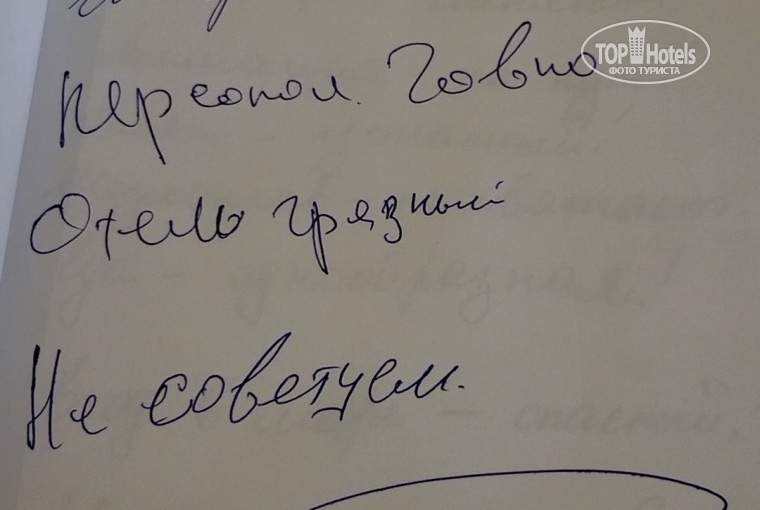 TOP Hotels
ФОТО ТУРИСТА
Персонал. Говно
Отель грязный
Не советуем.